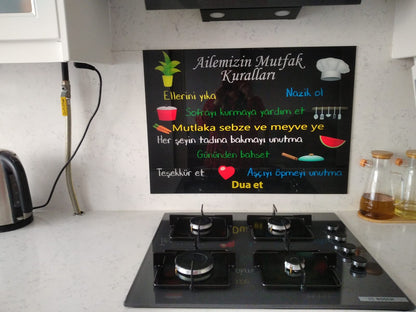 Ailemizin Mutfak
Kuralları
Ellerini yıka
Nazik ol
Sofrayı kurmaya yardım et
Mutlaka sebze ve meyve ye
Her şeyin tadına bakmayı unutma
Gününden bahset
Teşekkür et
Aşçıyı öpmeyi unutma
Dua et